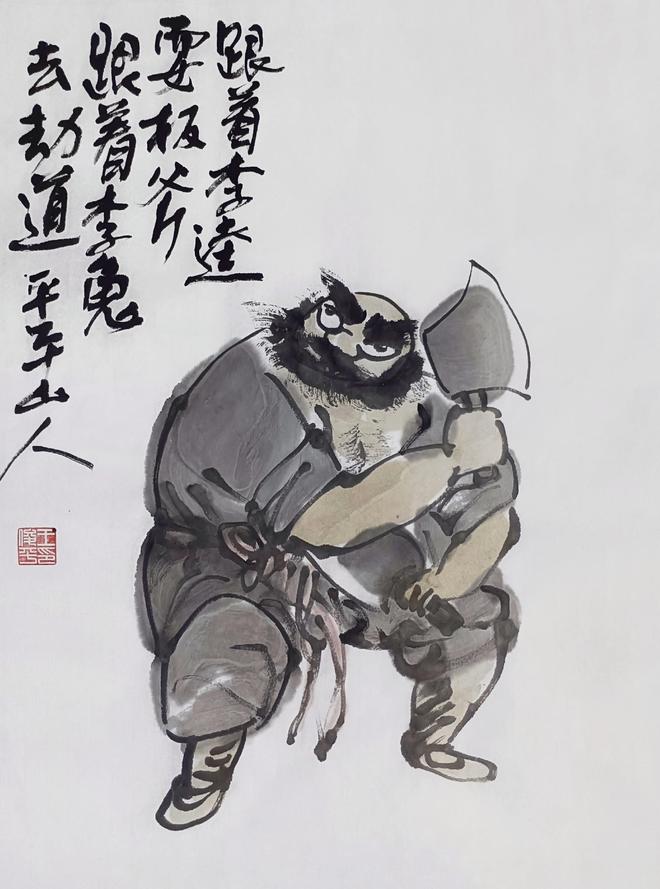 跟着李逵
耍板斧
跟着李鬼
去劫道 平平山人
王印
俊平